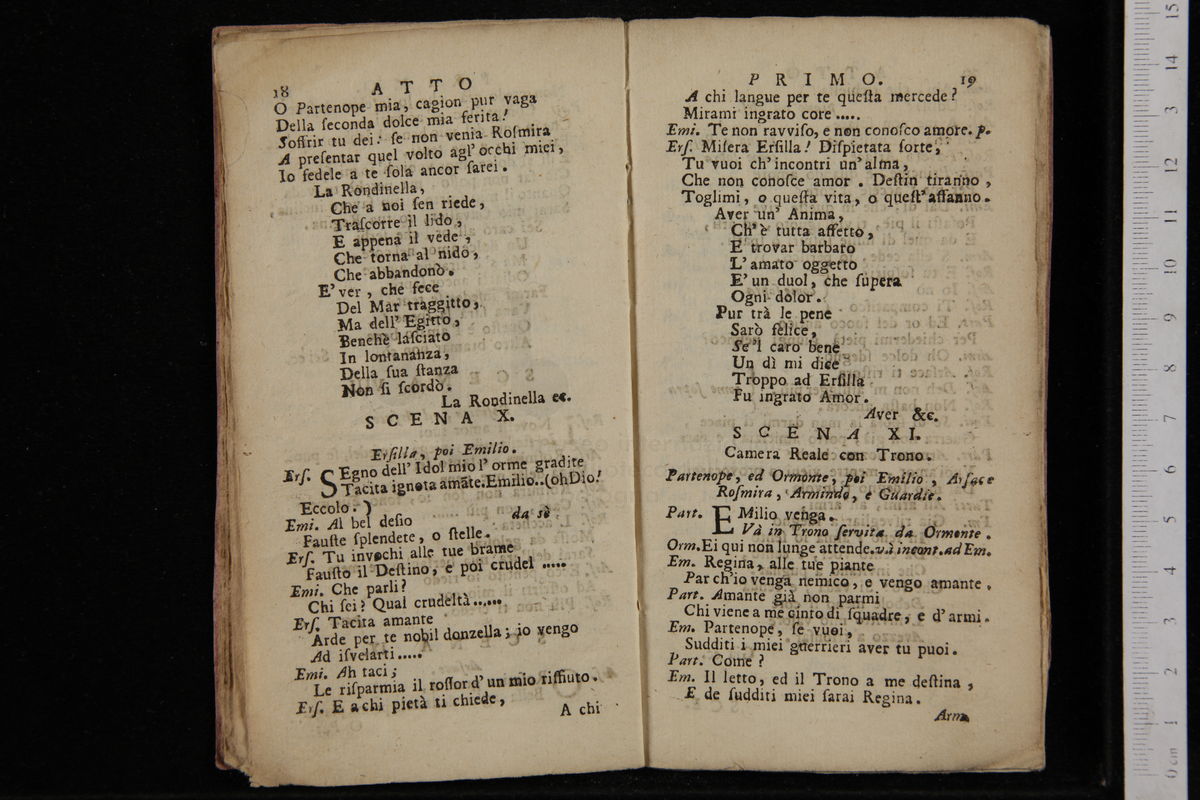 18 ATTO
O Partenope mia, cagion pur vaga
Della ſeconda dolce mia ferita!
Soffrir tu dei: ſe non venia Roſmira
A preſentar quel volto agl' occhi miei,
Io fedele a te ſola ancor ſarei.
La Rondinella,
Che a noi ſen riede,
Traſcorre il lido,
E appena il vede,
Che torna al nido,
Che abbandonò.
E' ver, che fece
Del Mar traggitto,
Ma dell' Egitto,
Benchè laſciato
In lontananza,
Della ſua ſtanza
Non ſi ſcordò.
La Rondinella ec.
SCENA X.
Erſilla, poi Emilio.
Erſ. SEgno dell' Idol mio l' orme gradite
Tacita ignota amāte. Emilio..(oh Dio!
Eccolo.) da sè
Emi. Al bel deſio
Fauſte ſplendete, o ſtelle.
Erſ. Tu invochi alle tue brame
Fauſto il Deſtino, e poi crudel .....
Emi. Che parli?
Chi ſei? Qual crudeltà......
Erſ. Tacita amante
Arde per te nobil donzella; io vengo
Ad iſvelarti.....
Emi. Ah taci;
Le riſparmia il roſſor d' un mio riffiuto.
Erſ. E a chi pietà ti chiede,
A chi
PRIMO. 19
A chi langue per te queſta mercede?
Mirami ingrato core.....
Emi. Te non ravviſo, e non conoſco amore. p.
Erſ. Miſera Erſilla! Diſpietata ſorte,
Tu vuoi ch' incontri un' alma,
Che non conoſce amor. Deſtin tiranno,
Toglimi, o queſta vita, o queſt' affanno.
Aver un' Anima,
Ch' è tutta affetto,
E trovar barbaro
L' amato oggetto
E' un duol, che ſupera
Ogni dolor.
Pur trà le pene
Sarò felice,
Se 'l caro bene
Un dì mi dice
Troppo ad Erſilla
Fu ingrato Amor.
Aver &c.
SCENA XI.
Camera Reale con Trono.
Partenope, ed Ormonte, poi Emilio, Arſace
Roſmira, Armindo, e Guardie.
Part. EMilio venga.
Và in Trono ſervita da Ormonte.
Orm. Ei qui non lunge attende. và incont. ad Em.
Em. Regina, alle tue piante
Par ch' io venga nemico, e vengo amante.
Part. Amante già non parmi
Chi viene a me cinto di ſquadre, e d' armi.
Em. Partenope, ſe vuoi,
Sudditi i miei guerrieri aver tu puoi.
Part. Come?
Em. Il letto, ed il Trono a me deſtina,
E de ſudditi miei ſarai Regina.
Arm.